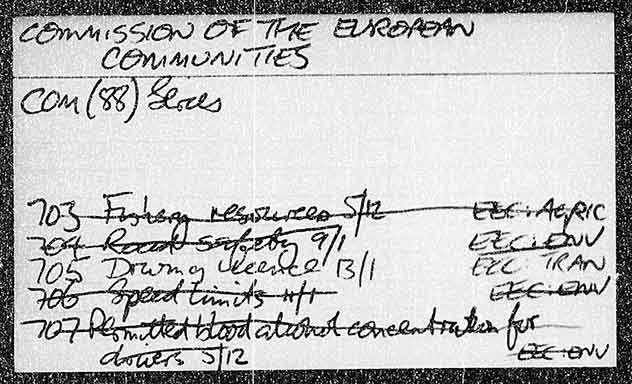 COMMISSION OF THE EUROPEAN
COMMUNITIES
COM (88) Series
703 Fishery resources 5/12 EEC: AGRIC
704 Road safety 9/1 EEC: ENV
705 Driving licence 13/1 EEC: TRAN
706 Speed Limits 11/1 EEC: ENV
707 Permitted blood alcohol concentration for
drivers 5/12 EEC: ENV